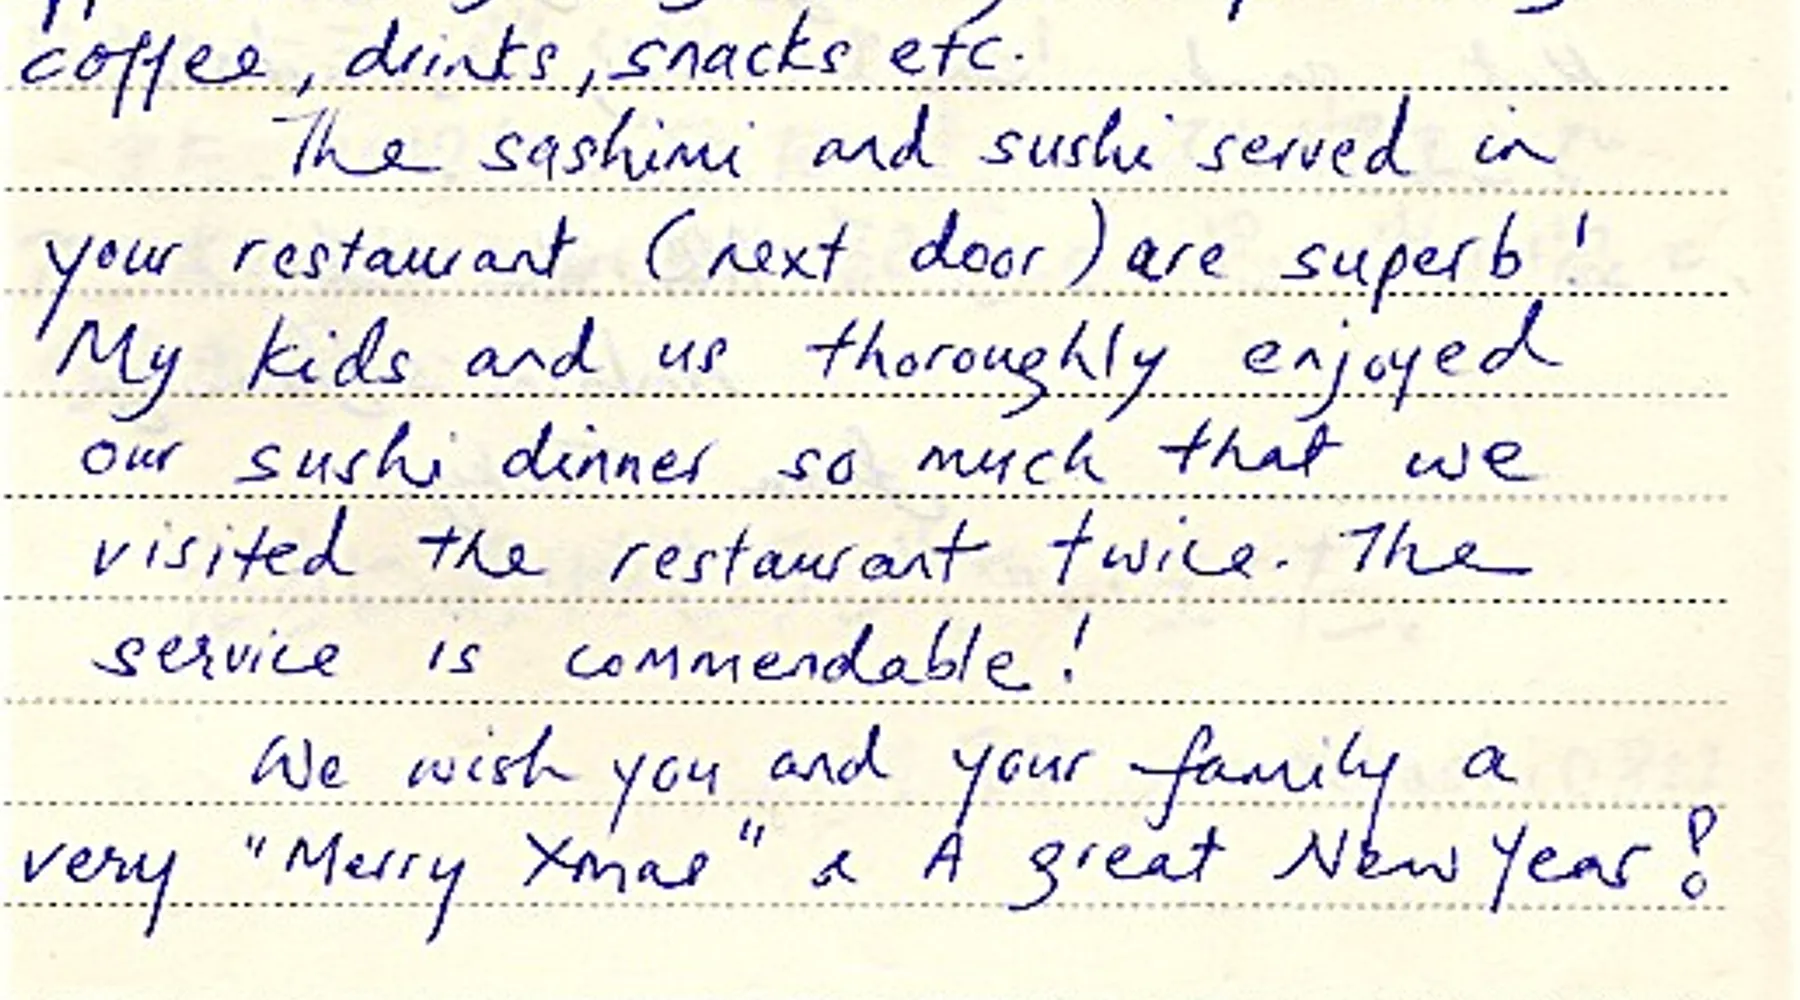 coffee, drinks, snacks etc.
The sashimi and sushi served in
your restaurant (next door) are superb!
My kids and us thoroughly enjoyed
our sushi dinner so much that we
visited the restaurant twice. The
service is commendable!
We wish you and your family a
very "Merry Xmas" & A great New Year!